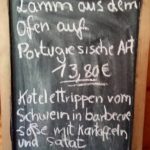 Lamm aus dem
Ofen auf
Portugiesische Art
13,80€
Kotelettrippen vom
Schwein in barbecue
soße mit Kartoffeln
und salat